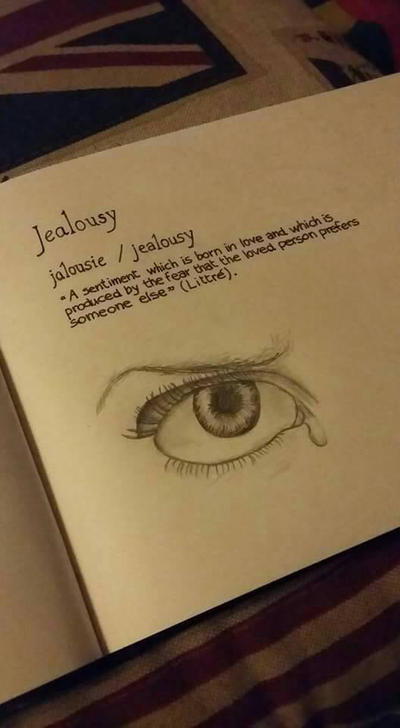 Jealousy
jalousie / jealousy
"A sentiment which is born in love and which is
produced by the fear that the loved person prefers
someone else" (Littré).